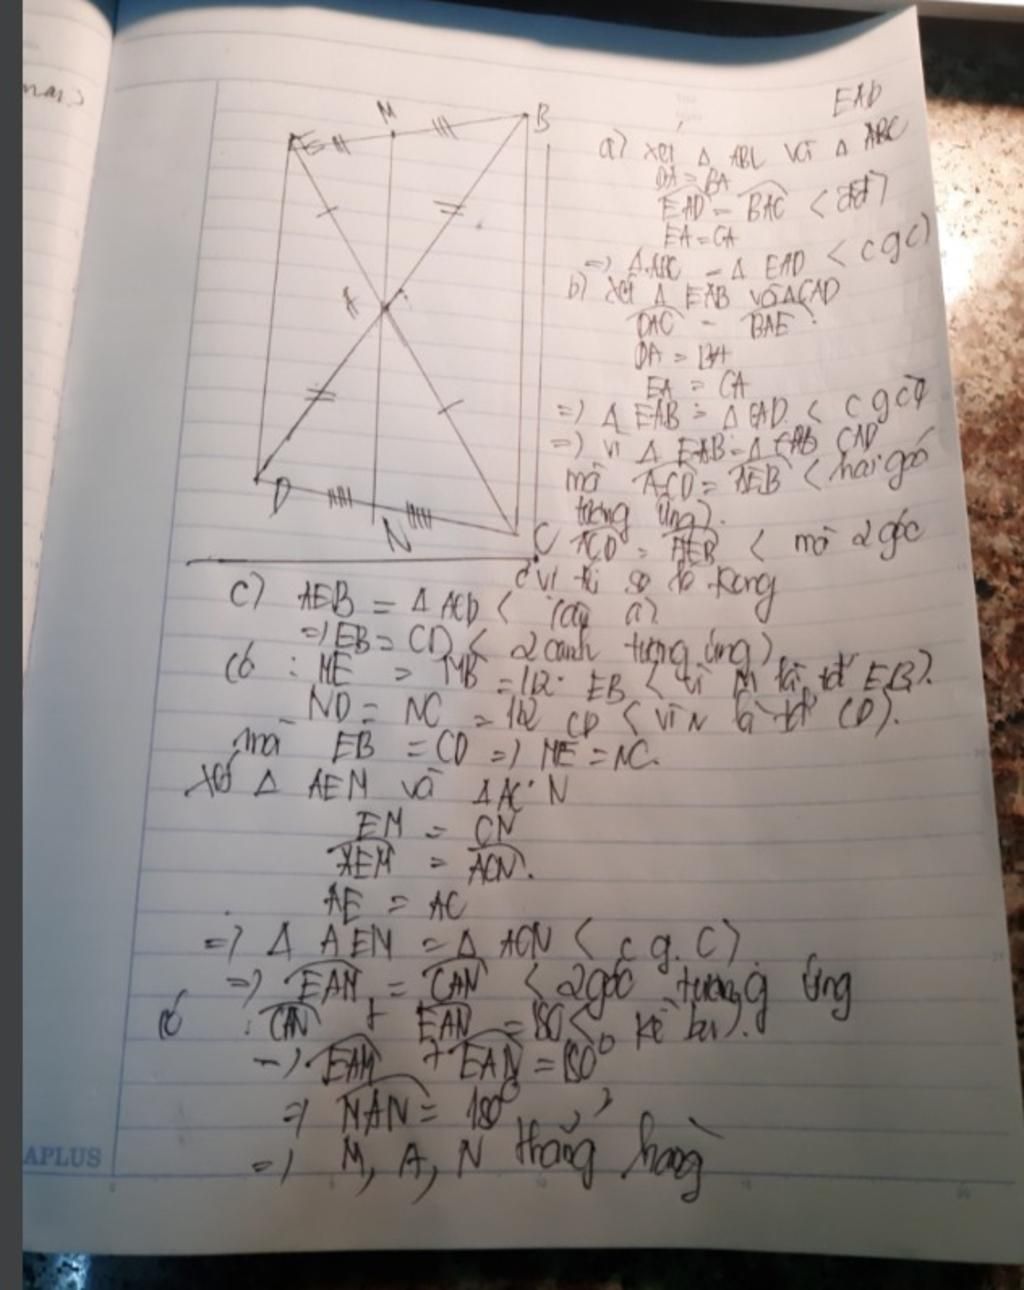 EAD
M
B
E
A
D
N
C
a) xét Δ ABC và Δ ABC
DA = BA
EAD = BAC < đđ)
EA = CA
=) Δ ABC = Δ EAD < c g c)
b) xét Δ EAB và Δ CAD
DAC = BAE
DA = BA
EA = CA
=) Δ EAB = Δ CAD < c g c)
=) vì Δ EAB = Δ CAD
mà ACD = AEB < hai góc
tương ứng).
ACD = AEB < mà 2 góc
ở vị trí so le trong
c) AEB = Δ ACD < câu a)
=) EB = CD < 2 cạnh tương ứng)
Có : ME = MB = 1/2 EB < vì M là tđ EB).
ND = NC = 1/2 CD < vì N là tđ CD).
mà EB = CD =) ME = NC.
xét Δ AEM và Δ AC N
EM = CN
AEM = ACN.
AE = AC
=) Δ AEM = Δ ACN < c g. c)
=) EAM = CAN < 2 góc tương ứng
có : CAN + EAN = 180° < kề bù).
=) EAM + EAN = 180°
=) MAN = 180°
=) M, A, N thẳng hàng
APLUS